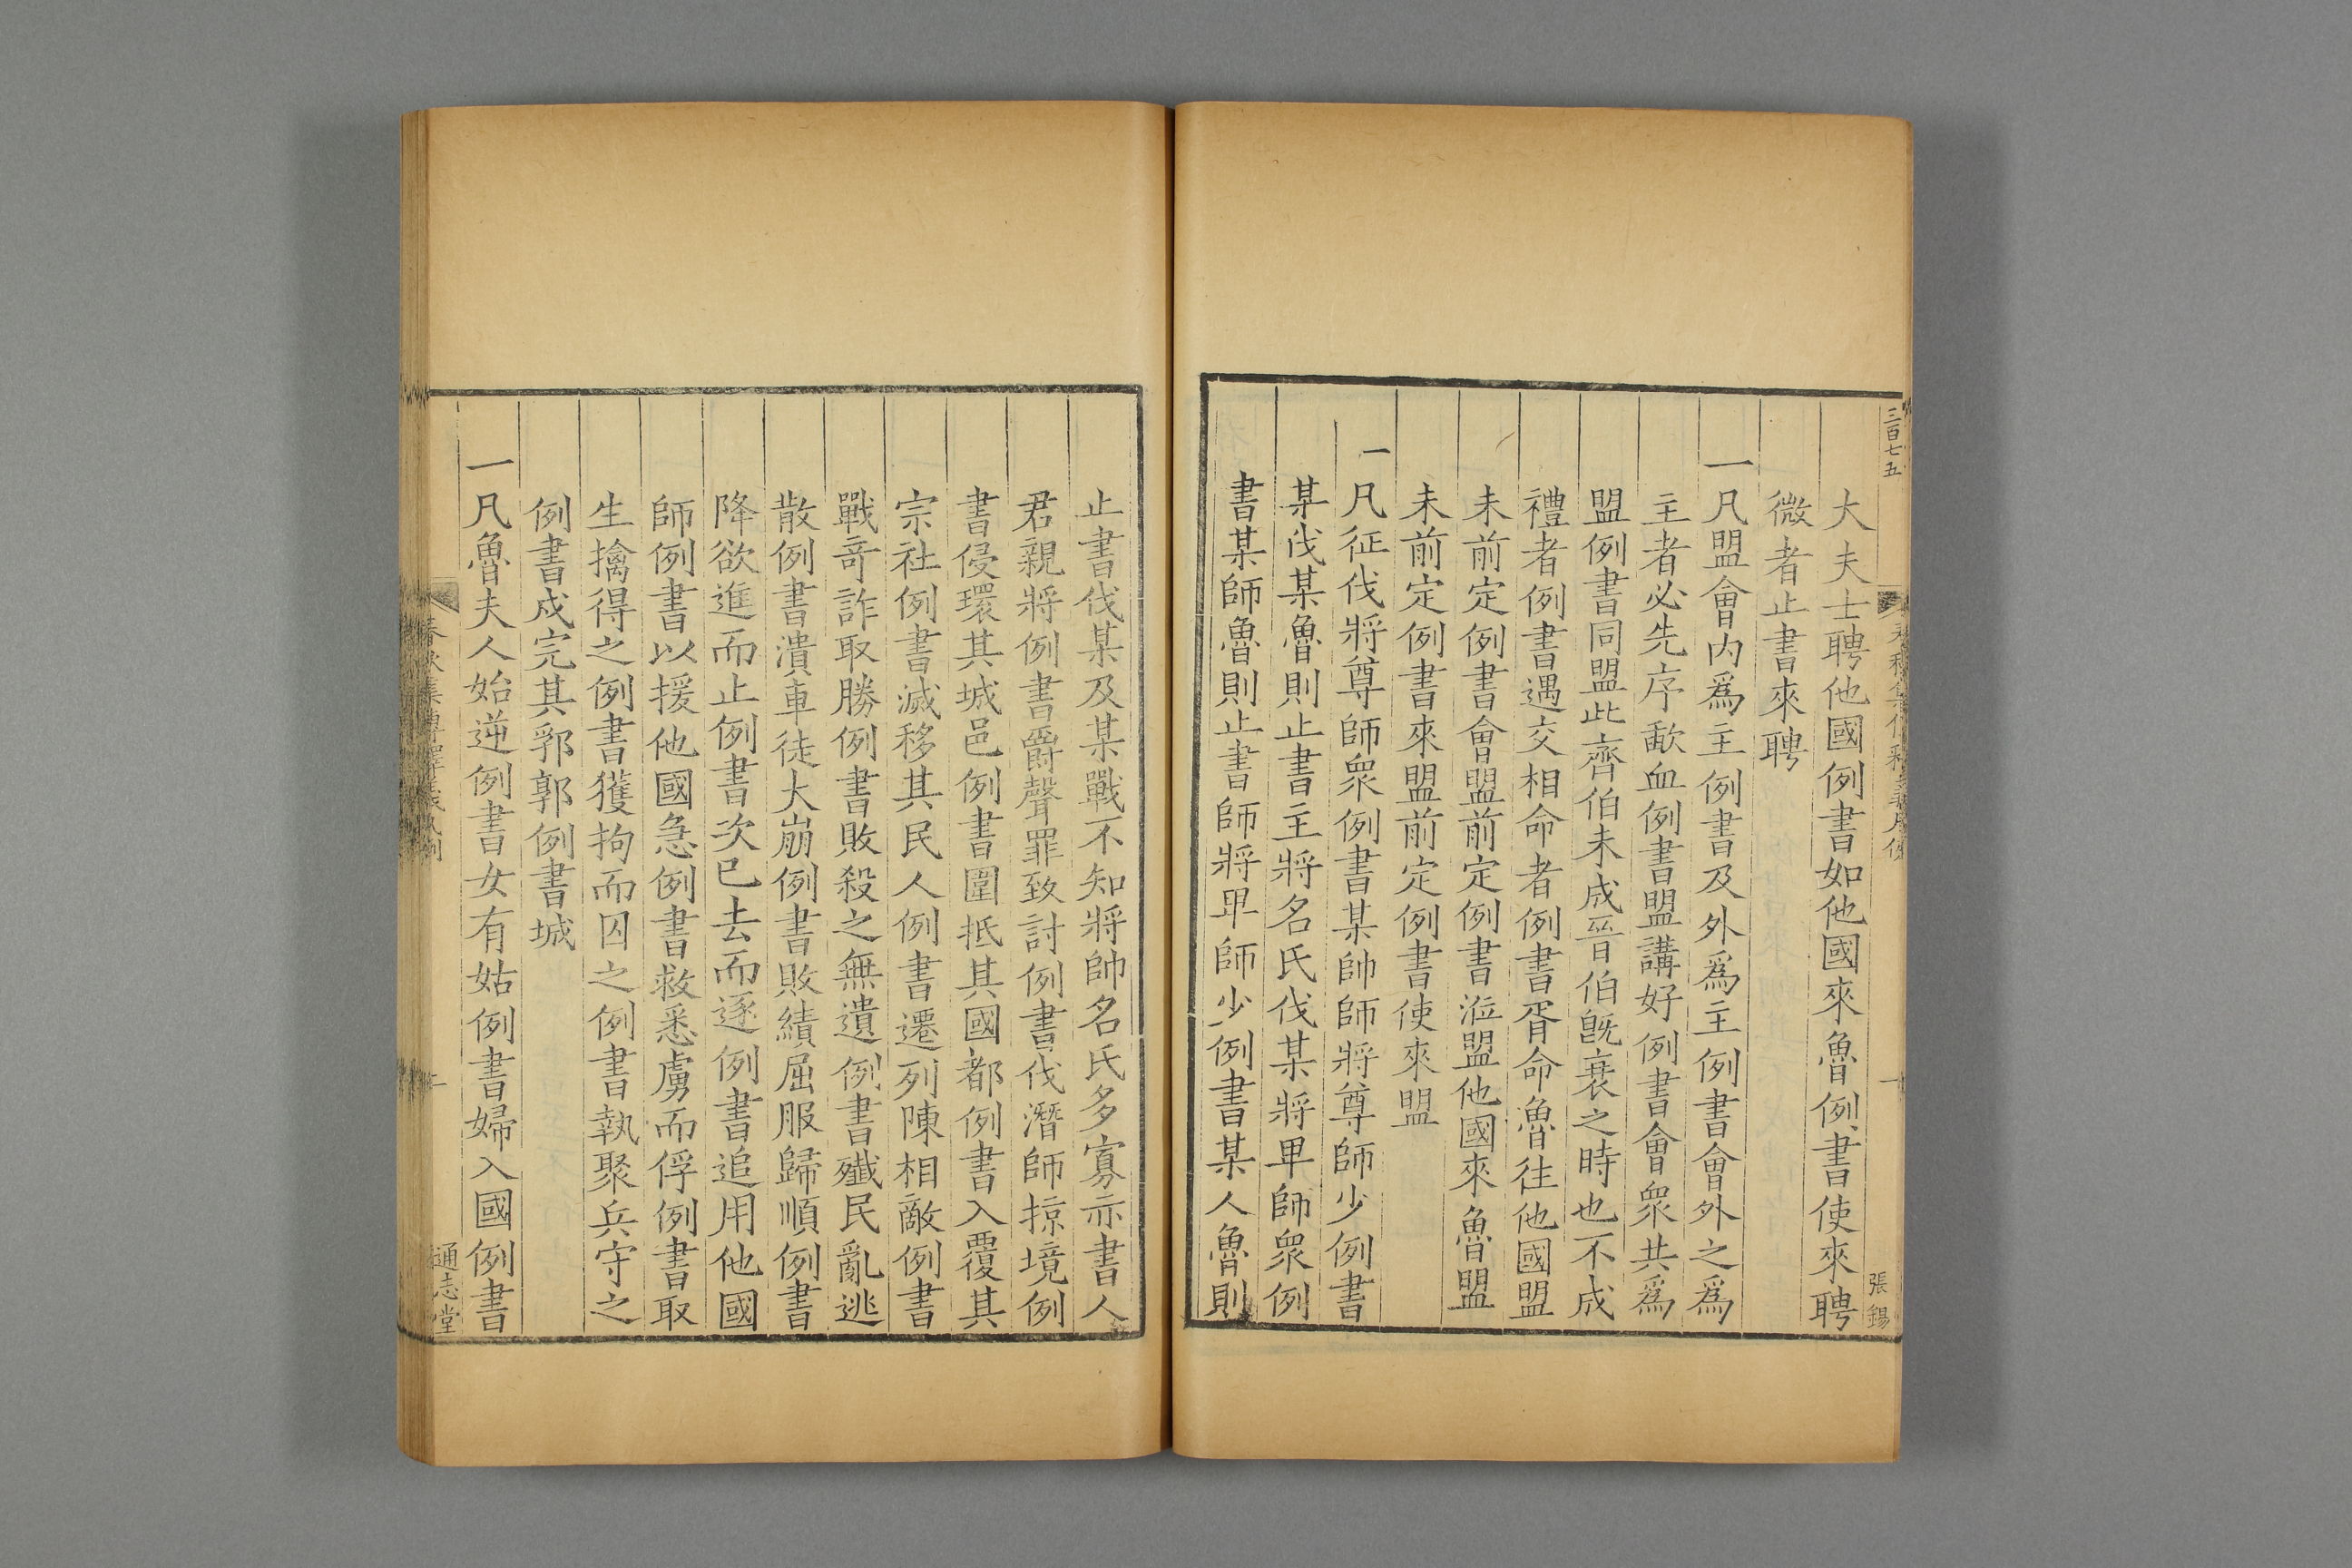 三百七五
張錫
大夫士聘他國例書如他國來魯例書使來聘
微者止書來聘
一凡盟會内爲主例書及外爲主例書會外之爲
主者必先序歃血例書盟講好例書會衆共爲
盟例書同盟此齊伯未成晉伯旣衰之時也不成
禮者例書遇交相命者例書胥命魯往他國盟
未前定例書會盟前定例書涖盟他國來魯盟
未前定例書來盟前定例書使來盟
一凡征伐將尊師衆例書某帥師將尊師少例書
某伐某魯則止書主將名氏伐某將卑師衆例
書某師魯則止書師將卑師少例書某人魯則
止書伐某及某戰不知將帥名氏多寡亦書人
君親將例書爵聲罪致討例書伐潛師掠境例
書侵環其城邑例書圍抵其國都例書入覆其
宗社例書滅移其民人例書遷列陳相敵例書
戰奇詐取勝例書敗殺之無遺例書殲民亂逃
散例書潰車徒大崩例書敗績屈服歸順例書
降欲進而止例書次已去而逐例書追用他國
師例書以援他國急例書救悉虜而俘例書取
生擒得之例書獲拘而囚之例書執聚兵守之
例書戍完其郛郭例書城
一凡魯夫人始逆例書女有姑例書婦入國例書
春秋集傳釋義凡例
二
通志堂